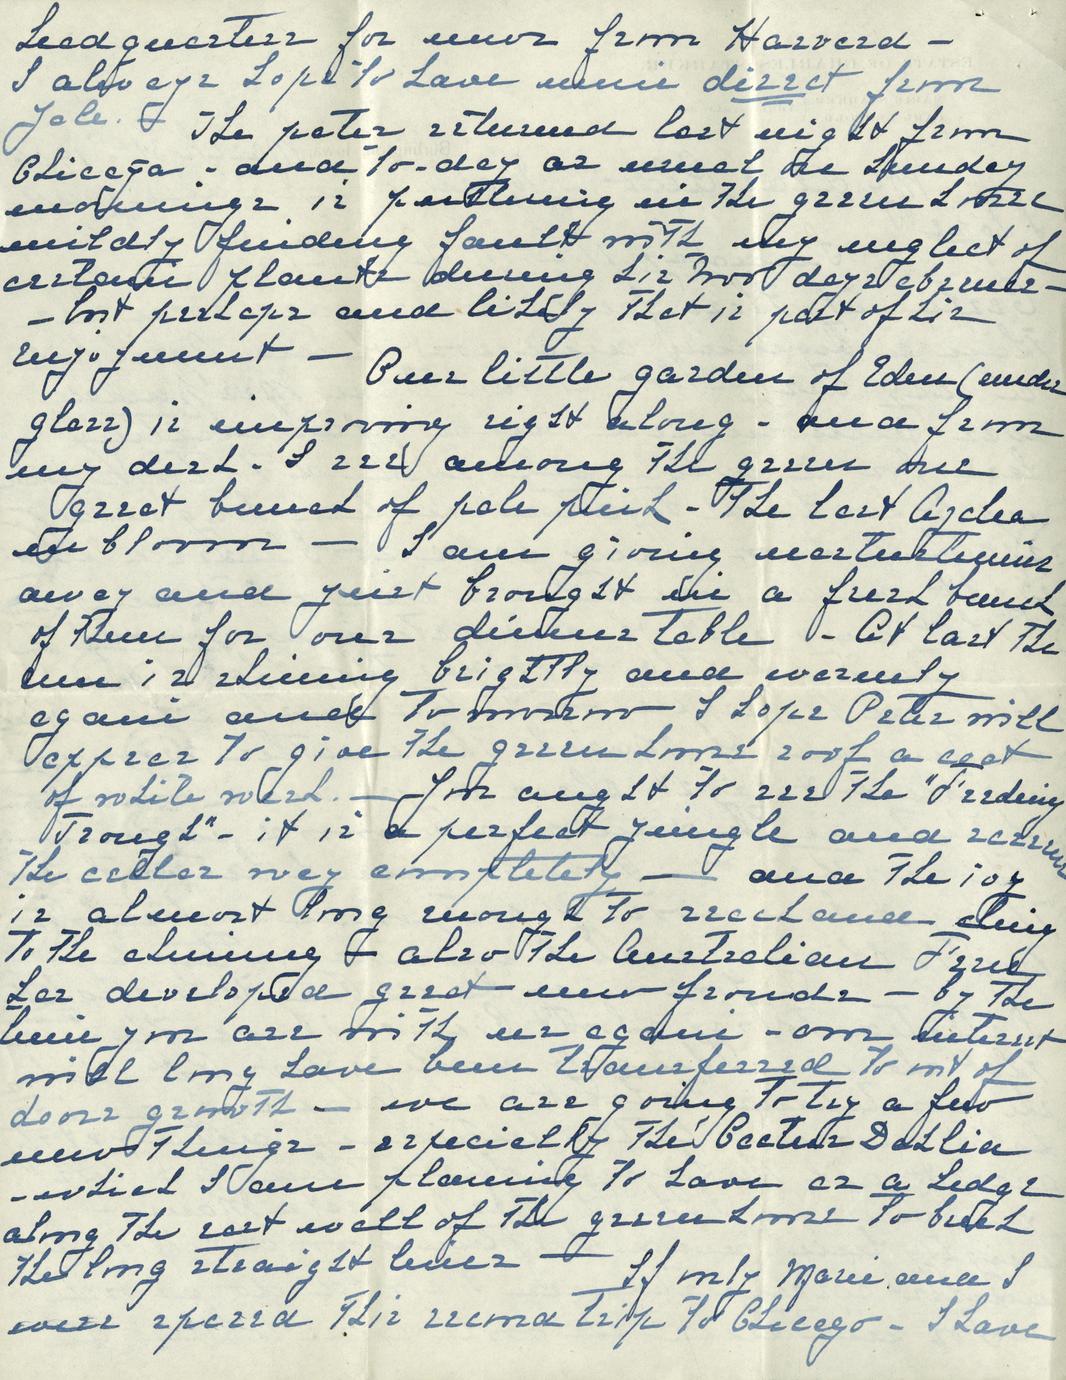 headquarters for news from Harvard -
I always hope to have mine direct from
Yale. - The pater returned last night from
Chicago - and to-day as usual on Sunday
mornings is puttering in the greenhouse
mildly finding fault with my neglect of
certain plants during his two days absence -
- but perhaps and likely that is part of his
enjoyment - Our little garden of Eden (under
glass) is improving right along - and from
my desk - I see among the green one
great bunch of pale pink - The last Azalea
in bloom - I am giving nasturtiums
away and just brought in a fresh bunch
of them for our dinner table - At last the
sun is shining brightly and warmly
again and tomorrow I hope Peter will
appear to give the greenhouse roof a coat
of white wash. - You ought to see the "Feeding
Trough" - it is a perfect jungle and screens
the cellar way completely - and the ivy
is almost long enough to reach and cling
to the chimney - also the Australian Fern
has developed great new fronds - by the
time you are with us again - our interest
will long have been transferred to out of
doors growth - we are going to try a few
new things - especially the Cactus Dahlia
- which I am planning to have as a hedge
along the east wall of the greenhouse to break
the long straight lines - If only Marie and I
were spared this second trip to Chicago - I have